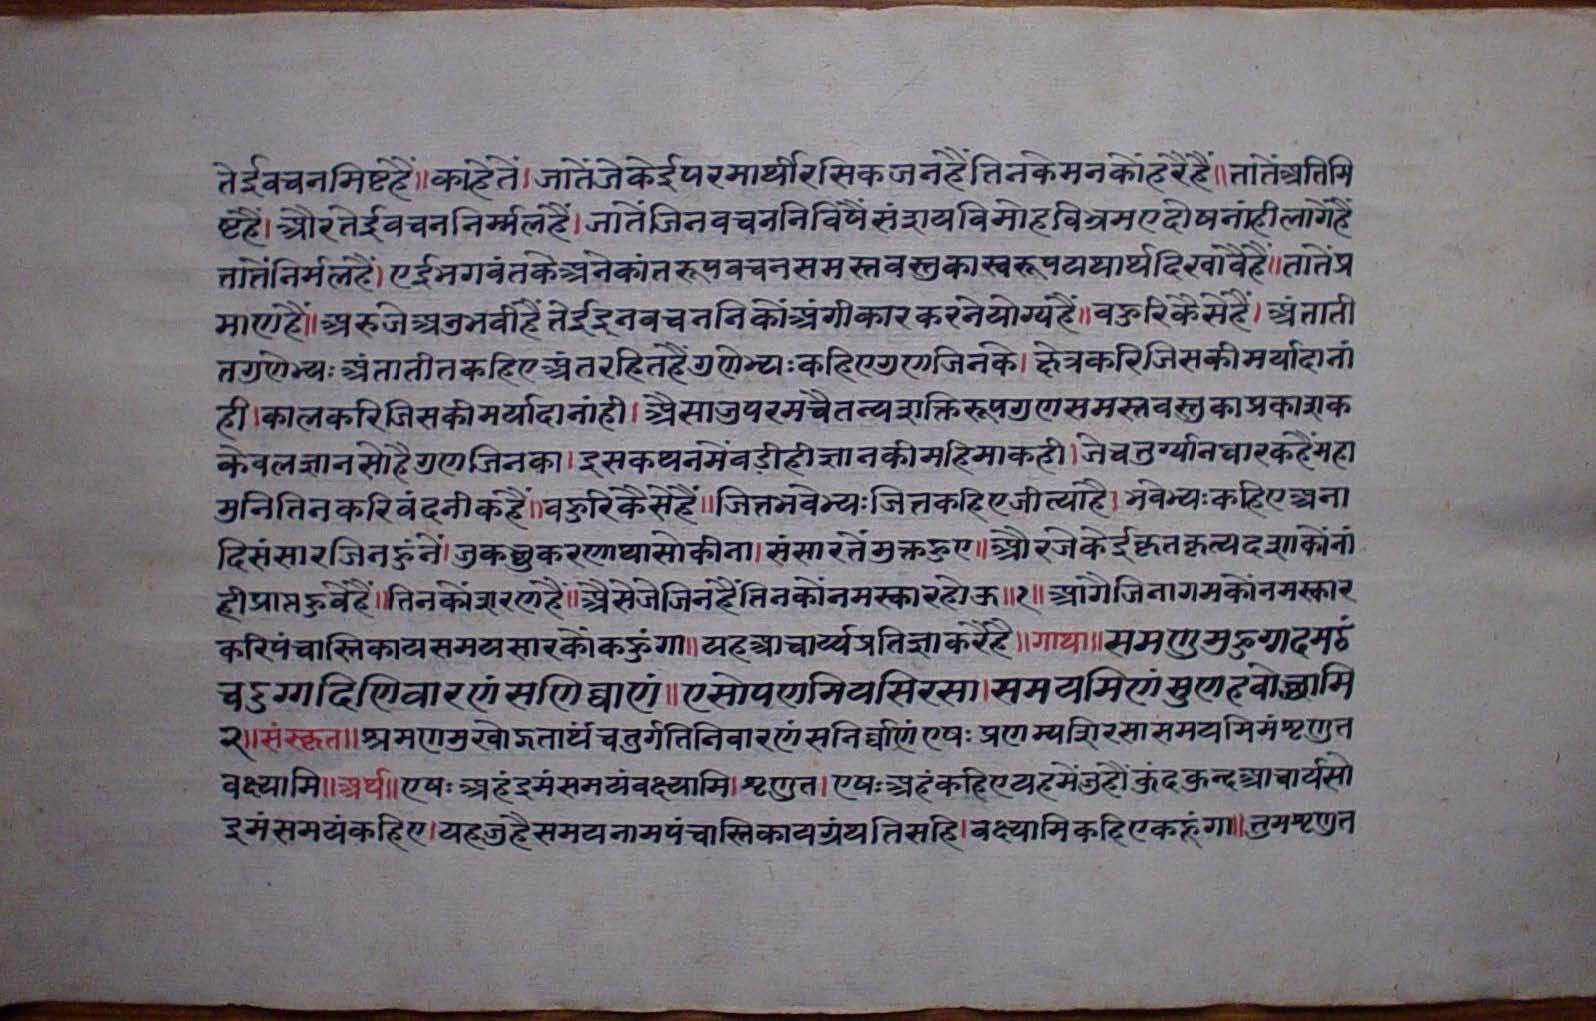 तेईवचनमिष्टहैं॥काहेतें।जातेंजेकेईपरमार्थीरसिकजनहैंतिनकेमनकोंहरैहैं॥तातेंअतिमि
ष्टहैं।औरतेईवचननिर्म्मलहैं।जातेंजिनवचननिविषैंसंशयविमोहविभ्रमएदोषनांहीलागैहैं
तातेंनिर्मलहैं।एईभगवंतकेअनेकांतरूपवचनसमस्तवस्तुकास्वरूपयथार्थदिखावैहैं॥तातेंप्र
माणहैं॥अरुजेअनुभवीहैंतेईइनवचननिकोंअंगीकारकरनेयोग्यहैं॥बहुरिकैसेहैं।अंताती
तगुणेभ्यःअंतातीतकहिएअंतरहितहैंगुणेभ्यःकहिएगुणजिनके।क्षेत्रकरिजिसकीमर्यादानां
ही।कालकरिजिसकीमर्यादानांही।अैसाजुपरमचैतन्यशक्तिरूपगुणसमस्तवस्तुकाप्रकाशक
केवलज्ञानसोहैगुणजिनका।इसकथनमेंबड़ीहीज्ञानकीमहिमाकही।जेचतुर्ग्यानधारकहैंमहा
मुनितिनकरिवंदनीकहैं॥बहुरिकैसेहैं॥जितभवेभ्यःजितकहिएजीत्याहै।भवेभ्यःकहिएअना
दिसंसारजिनहुंनें।जुकछुकरणाथासोकीना।संसारतेंमुक्तहुए॥औरजेकेईकृतकृत्यदशाकोंनां
हीप्राप्तहुवैहैं।तिनकोंशरणहैं॥अैसेजेजिनहैंतिनकोंनमस्कारहोऊ॥१॥आगैजिनागमकोंनमस्कार
करिपंचास्तिकायसमयसारकोंकहुंगा॥यहआचार्य्यप्रतिज्ञाकरैहै॥गाथा॥समणुमुहुग्गदमठं
चउग्गदिणिवारणंसणिव्वाणं॥एसोपणमियसिरसा।समयमिणंसुणहवोच्छामि
२॥संस्कृत॥श्रमणमुखोद्गतार्थंचतुर्गतिनिवारणंसनिर्व्वाणंएषःप्रणम्यशिरसासमयमिमंशृणुत
वक्ष्यामि॥अर्थ॥एषःअहंइमंसमयंवक्ष्यामि।शृणुत।एषःअहंकहिएयहमेंजुहौंकुंदकुन्दआचार्यसो
इमंसमयंकहिए।यहजुहैसमयनामपंचास्तिकायग्रंथतिसहि।वक्ष्यामिकहिएकहूंगा॥तुमशृणुत